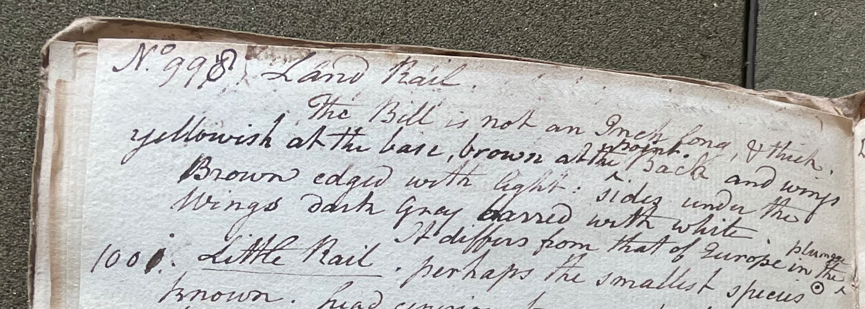 No. 998) Land Rail.
The Bill is not an Inch long, & thick.
yellowish at the base, brown at the point. Back and wings
Brown edged with light: sides under the
Wings dark Grey barred with white.
It differs from that of Europe in the plumage
1001. Little Rail. perhaps the smallest species
known. head